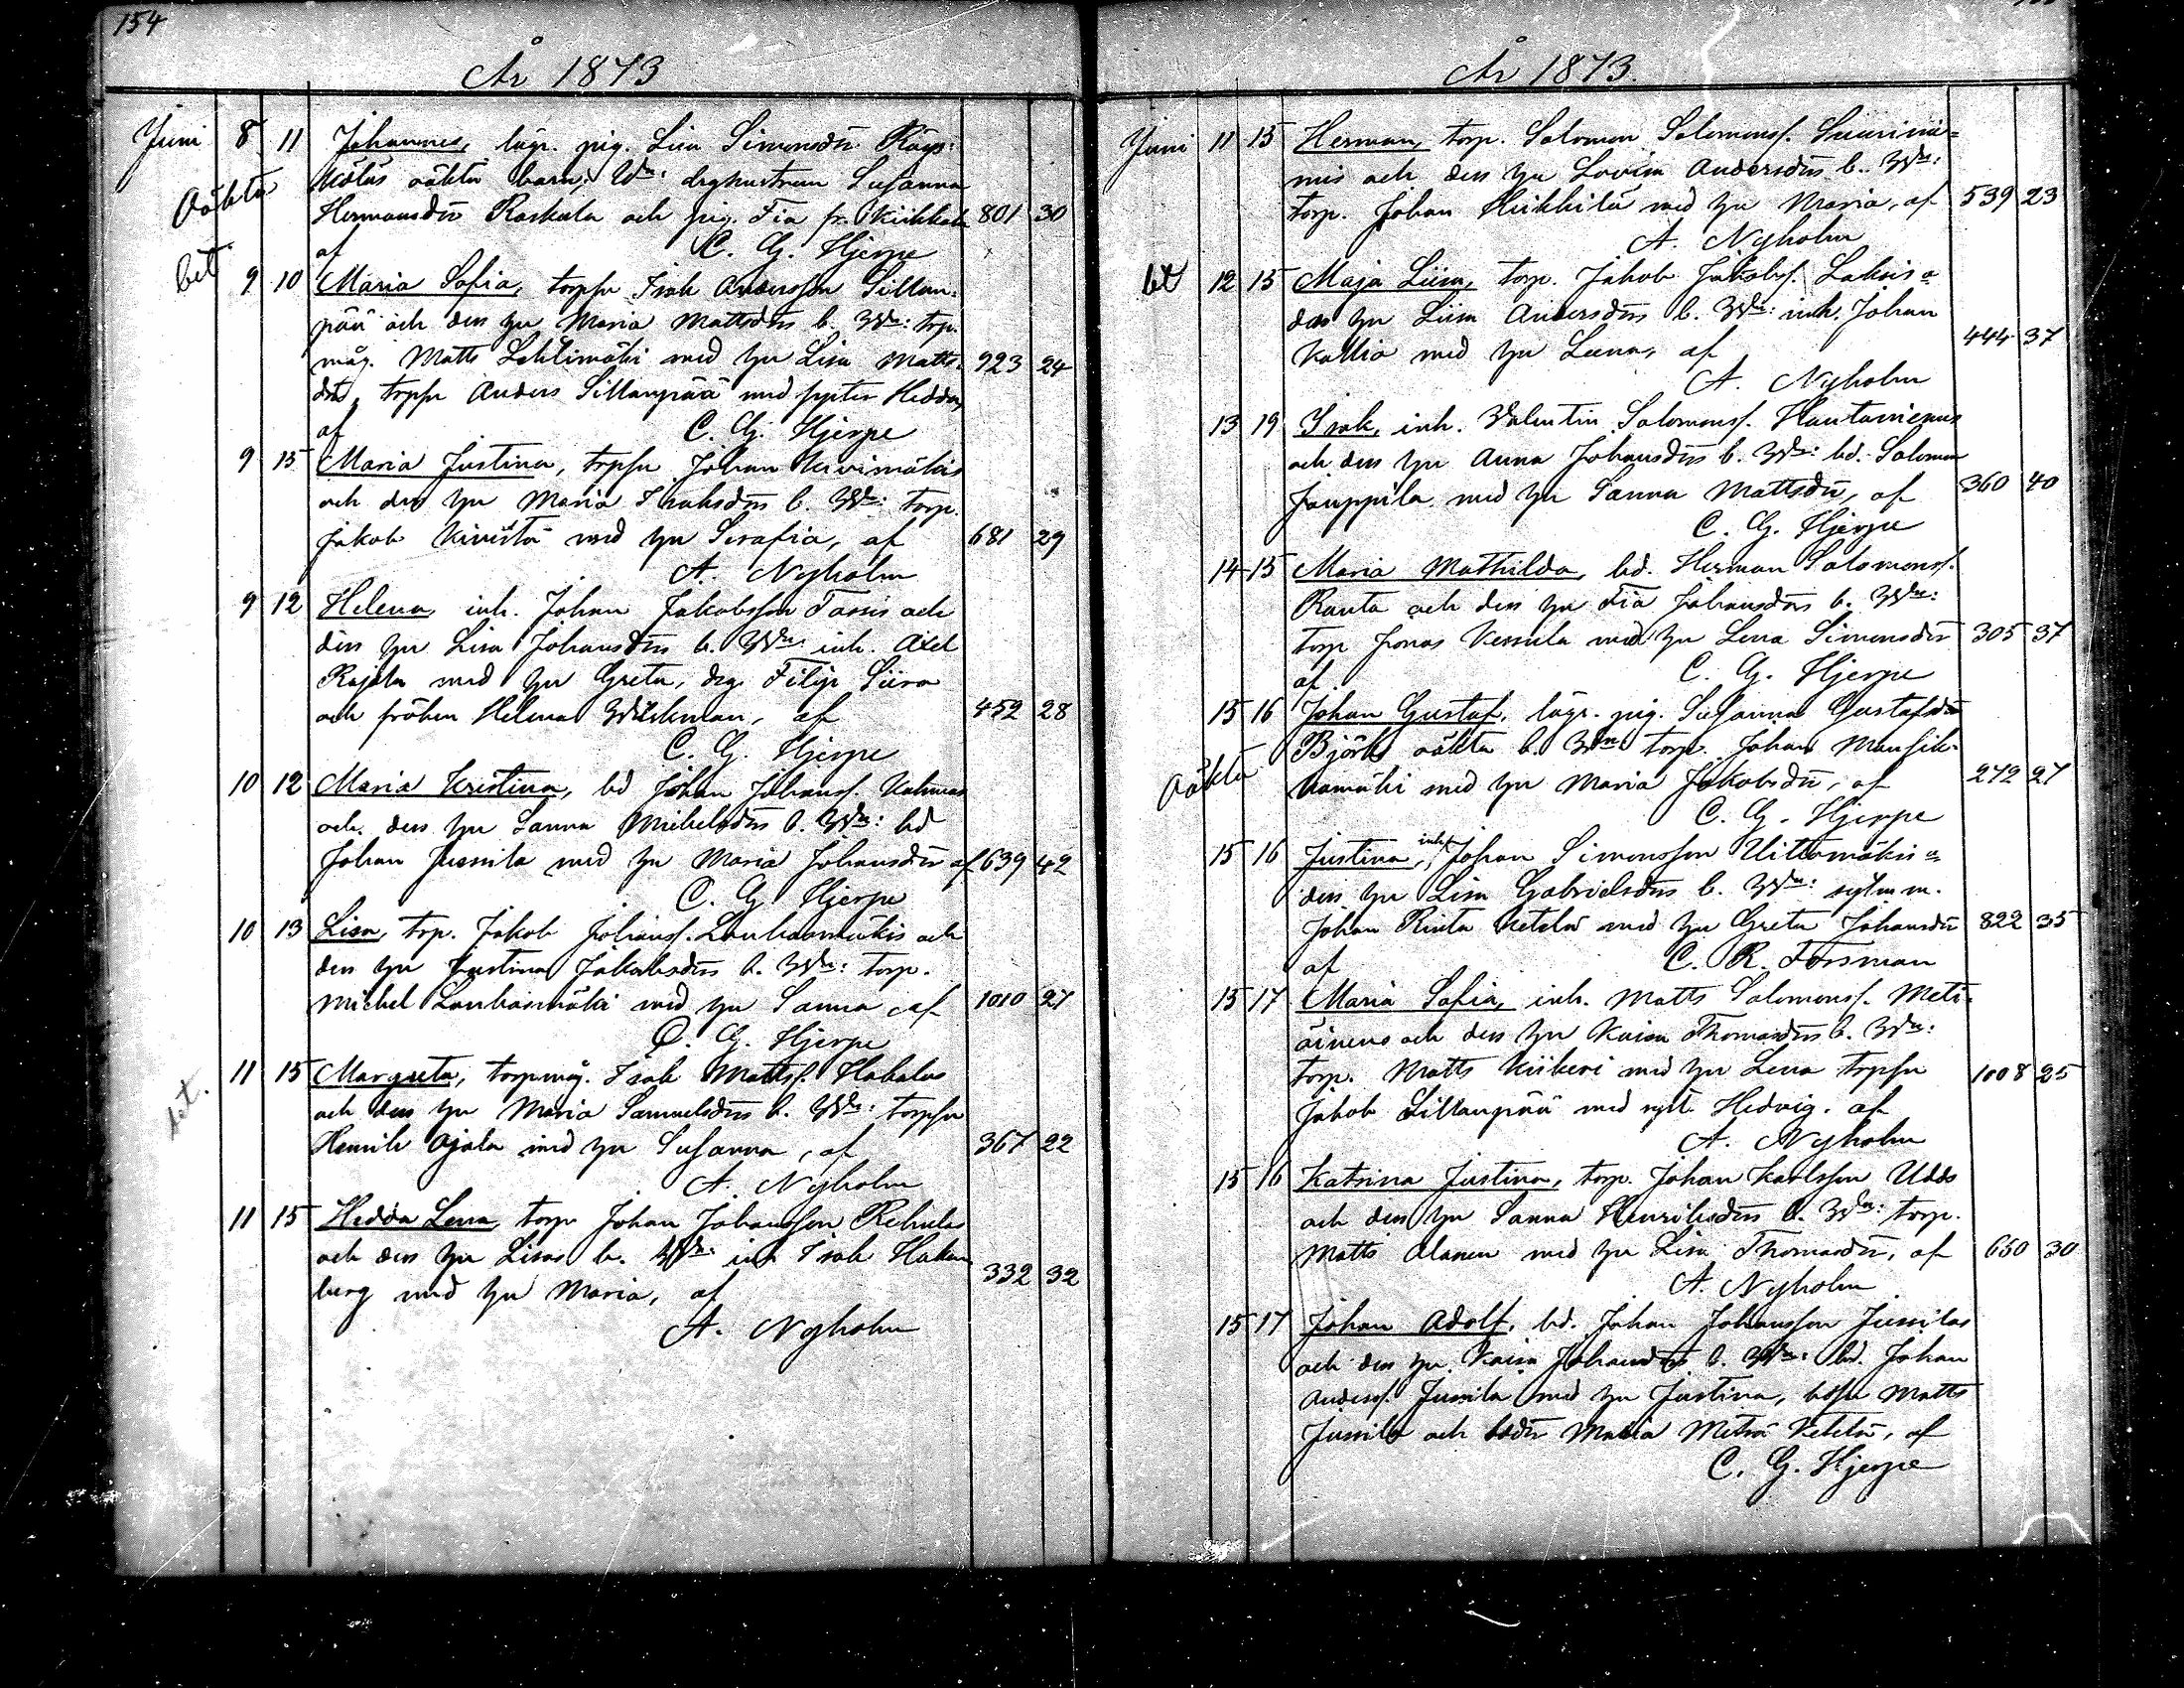 154
År 1873
Juni 8 11 Johannes, lägr. pig. Lisa Simonsdr Käys-
köläs oäkta barn; Wn: drghustrun Susanna
oäkta
Hermansdr Raskala och pig. Fia fr. Kiikkala 801 30
af C. G. Hjerpe
bet
9 10 Maria Sofia, torpsn Isak Andersson Sillan-
pää och dess hu Maria Mattsdrs b. Wn: trp.
måg. Matts Lehtimäki med hu Lisa Matts- 923 24
dr, trpsn Anders Sillanpää med syster Hedda,
af C. G. Hjerpe
9 15 Maria Justina, trpsn Johan Kivimäkis
och dess hu Maria Isaksdrs b. Wn: torp.
Jakob Kivistö med hu Serafia, af 681 29
A. Nyholm
9 12 Helena, inh. Johan Jakobsson Tassis och
dess hu Lisa Johansdrs b. Wn: inh. Axel
Rajala med hu Greta, drg. Filip Siira
och fröken Helena, af 452 28
C. G. Hjerpe
10 12 Maria Kristina, bd Johan Johanss.
och dess hu Sanna Michelsdrs b. Wn: bd
Johan Jussila med hu Maria Johansdr af 639 42
C. G. Hjerpe
10 13 Lisa, trp. Jakob Johanss. Louhosmäkis och
dess hu Justina Jakobsdrs b. Wn: torp.
Michel Louhosmäki med hu Sanna af 1010 27
C. G. Hjerpe
11 15 Margreta, torpmåg. Isak Mattss. Hakalas
bet.
och dess hu Maria Samuelsdrs b. Wn: torpsn
Henrik Ojala med hu Susanna, af 367 22
A. Nyholm
11 15 Hedda Lena, torp. Johan Johansson Rehulas
och dess hu Lisas b. Wn: inh Isak Hakan
berg med hu Maria, af 332 32
A. Nyholm
År 1873.
Juni 11 15 Herman, torp. Salomon Salomonss. Suurinie-
mis och dess hu Lovisa Andersdrs b. Wn:
torp. Johan Heikkilä med hu Maria, af 539 23
A. Nyholm
bet 12 15 Maja Liisa, torp. Jakob Jakobss. Laksis o.
dess hu Liisa Andersdrs b. Wn: inh. Johan
Kallio med hu Leena, af 444 37
A. Nyholm
13 19 Isak, inh. Valentin Salomonss. Hautaniemis
och dess hu Anna Johansdrs b. Wn: bd. Salomon
Jouppila med hu Sanna Mattsdr, af 360 40
C. G. Hjerpe
14 15 Maria Mathilda, bd. Herman Salomonss.
Ranta och dess hu Fia Johansdrs b. Wn:
torp Jonas Kessula med hu Lena Simonsdr 305 37
af C. G. Hjerpe
15 16 Johan Gustaf, lägr. pig. Susanna Gustafsdr
Björk oäkta b. Wn: torp. Johan Mansik-
oäkta
kamäki med hu Maria Jakobsdr, af 272 27
C. G. Hjerpe
15 16 Justina, inh. Johan Simonsson Uittomäkis o.
dess hu Lisa Gabrielsdrs b. Wn: sytn m.
Johan Rinta Ketelä med hu Greta Johansdr 822 35
af C. R. Forsman
15 17 Maria Sofia, inh. Matts Salomonss. Metä-
äinens och dess hu Kaisa Thomasdrs b. Wn:
torp. Matts Kiikeri med hu Lena trpsn 1008 25
Jakob Sillanpää med syst. Hedvig. af
A. Nyholm
15 16 Katrina Justina, torp. Johan Karlsson Udds
och dess hu Sanna Henriksdrs b. Wn: torp.
Matts Alanen med hu Lisa Thomasdr, af 650 30
A. Nyholm
15 17 Johan Adolf, bd. Johan Johansson Jussilas
och dess hu Kaisa Johansdrs b. Wn: bd. Johan
Anderss. Jussila med hu Justina, bdsn Matts
Jussila och bddr Maria Metsä Ketelä, af
C. G. Hjerpe